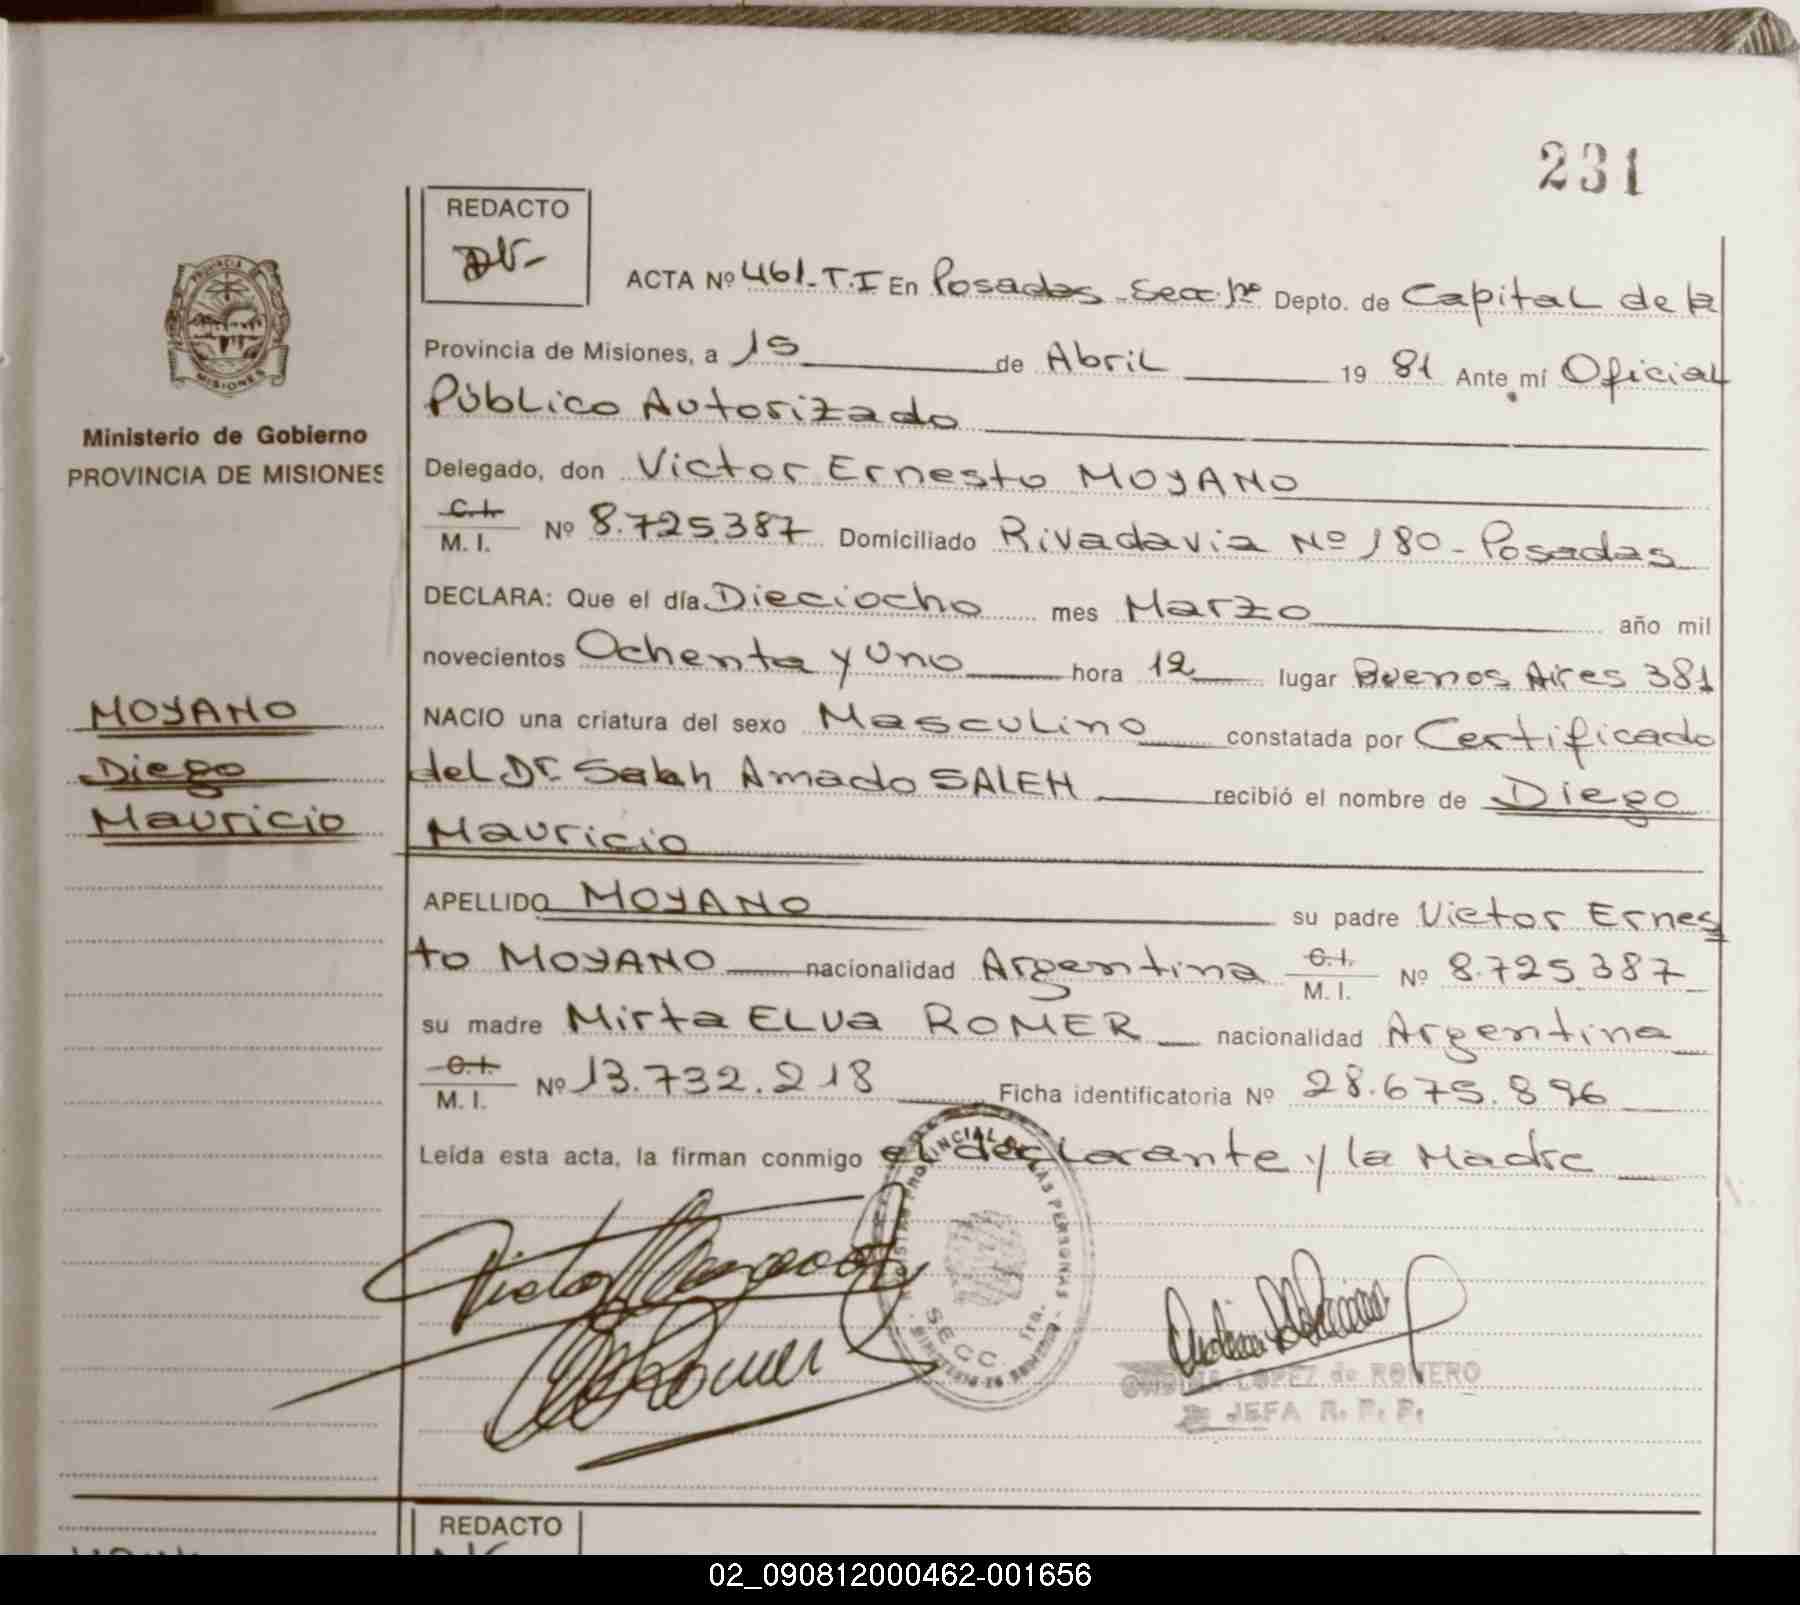 231
REDACTO
ACTA Nº 461-T.I En Posadas-Secc. 1ra Depto. de Capital de la
Provincia de Misiones, a 15 de Abril 19 81 Ante mí Oficial
Público Autorizado
Delegado, don Victor Ernesto MOYANO
C.I.
M. I. Nº 8.725.387 Domiciliado Rivadavia Nº 180-Posadas
DECLARA: Que el día Dieciocho mes Marzo año mil
novecientos Ochenta y Uno hora 12 lugar Buenos Aires 381
NACIO una criatura del sexo Masculino constatada por Certificado
del Dr. Salah Amado SALEH recibió el nombre de Diego
Mauricio
APELLIDO MOYANO su padre Victor Ernes
to MOYANO nacionalidad Argentina C.I. M. I. Nº 8.725.387
su madre Mirta ELVa ROMER nacionalidad Argentina
C.I.
M. I. Nº 13.732.218 Ficha identificatoria Nº 28.675.896
Leída esta acta, la firman conmigo el declarante y la Madre
PROVINCIA DE MISIONES
Ministerio de Gobierno
PROVINCIA DE MISIONES
MOYANO
Diego
Mauricio
PROVINCIAL DE LAS PERSONAS
LOPEZ de ROMERO
JEFA R. P. P.
REDACTO
02_090812000462-001656